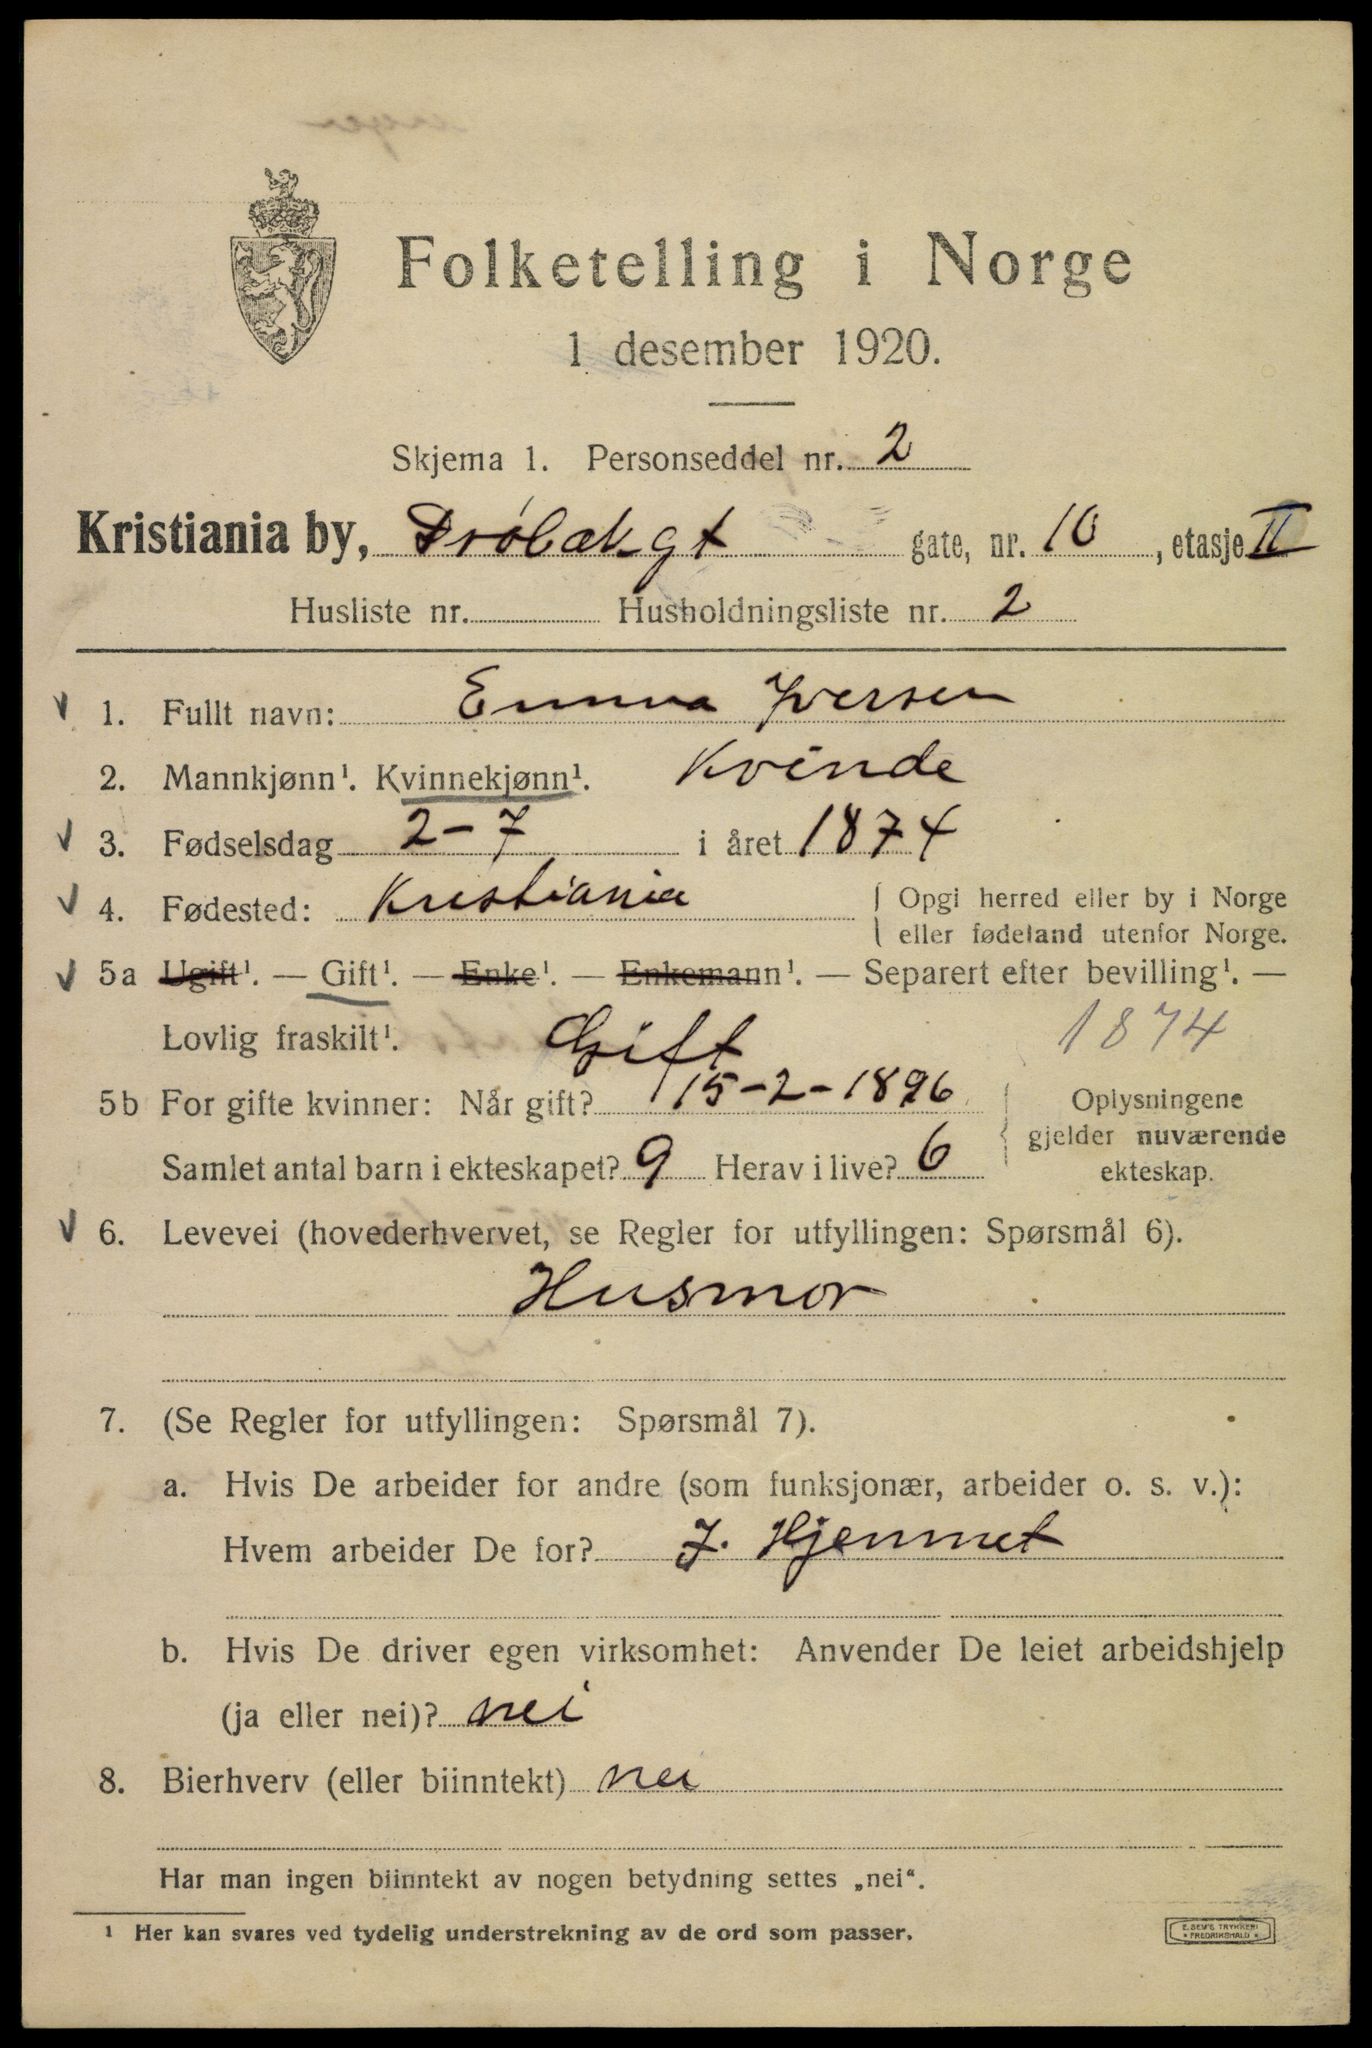 Folketelling i Norge
1 desember 1920.
Skjema 1. Personseddel nr. 2
Kristiania by, Dröbakgt gate, nr. 10, etasje II
Husliste nr. Husholdningsliste nr. 2
1. Fullt navn: Emma Iversen
2. Mannkjønn¹. Kvinnekjønn¹. Kvinde
3. Fødselsdag 2-7 i året 1874
4. Fødested: Kristiania { Opgi herred eller by i Norge
eller fødeland utenfor Norge.
5a Ugift¹. — Gift¹. — Enke¹. — Enkemann¹. — Separert efter bevilling¹. —
Lovlig fraskilt¹. Gift 1874
5b For gifte kvinner: Når gift? 15-2-1896 { Oplysningene
gjelder nuværende
Samlet antal barn i ekteskapet? 9 Herav i live? 6 ekteskap.
6. Levevei (hovederhvervet, se Regler for utfyllingen: Spørsmål 6).
Husmor
7. (Se Regler for utfyllingen: Spørsmål 7).
a. Hvis De arbeider for andre (som funksjonær, arbeider o. s. v.):
Hvem arbeider De for? I. Hjemmet
b. Hvis De driver egen virksomhet: Anvender De leiet arbeidshjelp
(ja eller nei)? nei
8. Bierhverv (eller biinntekt) nei
Har man ingen biinntekt av nogen betydning settes „nei“.
¹ Her kan svares ved tydelig understrekning av de ord som passer.
E. SEM'S TRYKKERI
* FREDRIKSHALD *